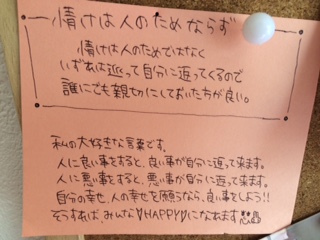 情けは人のためならず
情けは人のためではなく
いずれは巡って自分に返ってくるので
誰にでも親切にしておいた方が良い。
私の大好きな言葉です。
人に良い事をすると、良い事が自分に返って来ます。
人に悪い事をすると、悪い事が自分に返って来ます。
自分の幸せ、人の幸せを願うなら、良い事をしよう!!
そうすれば、みんな♡HAPPY♡になれます